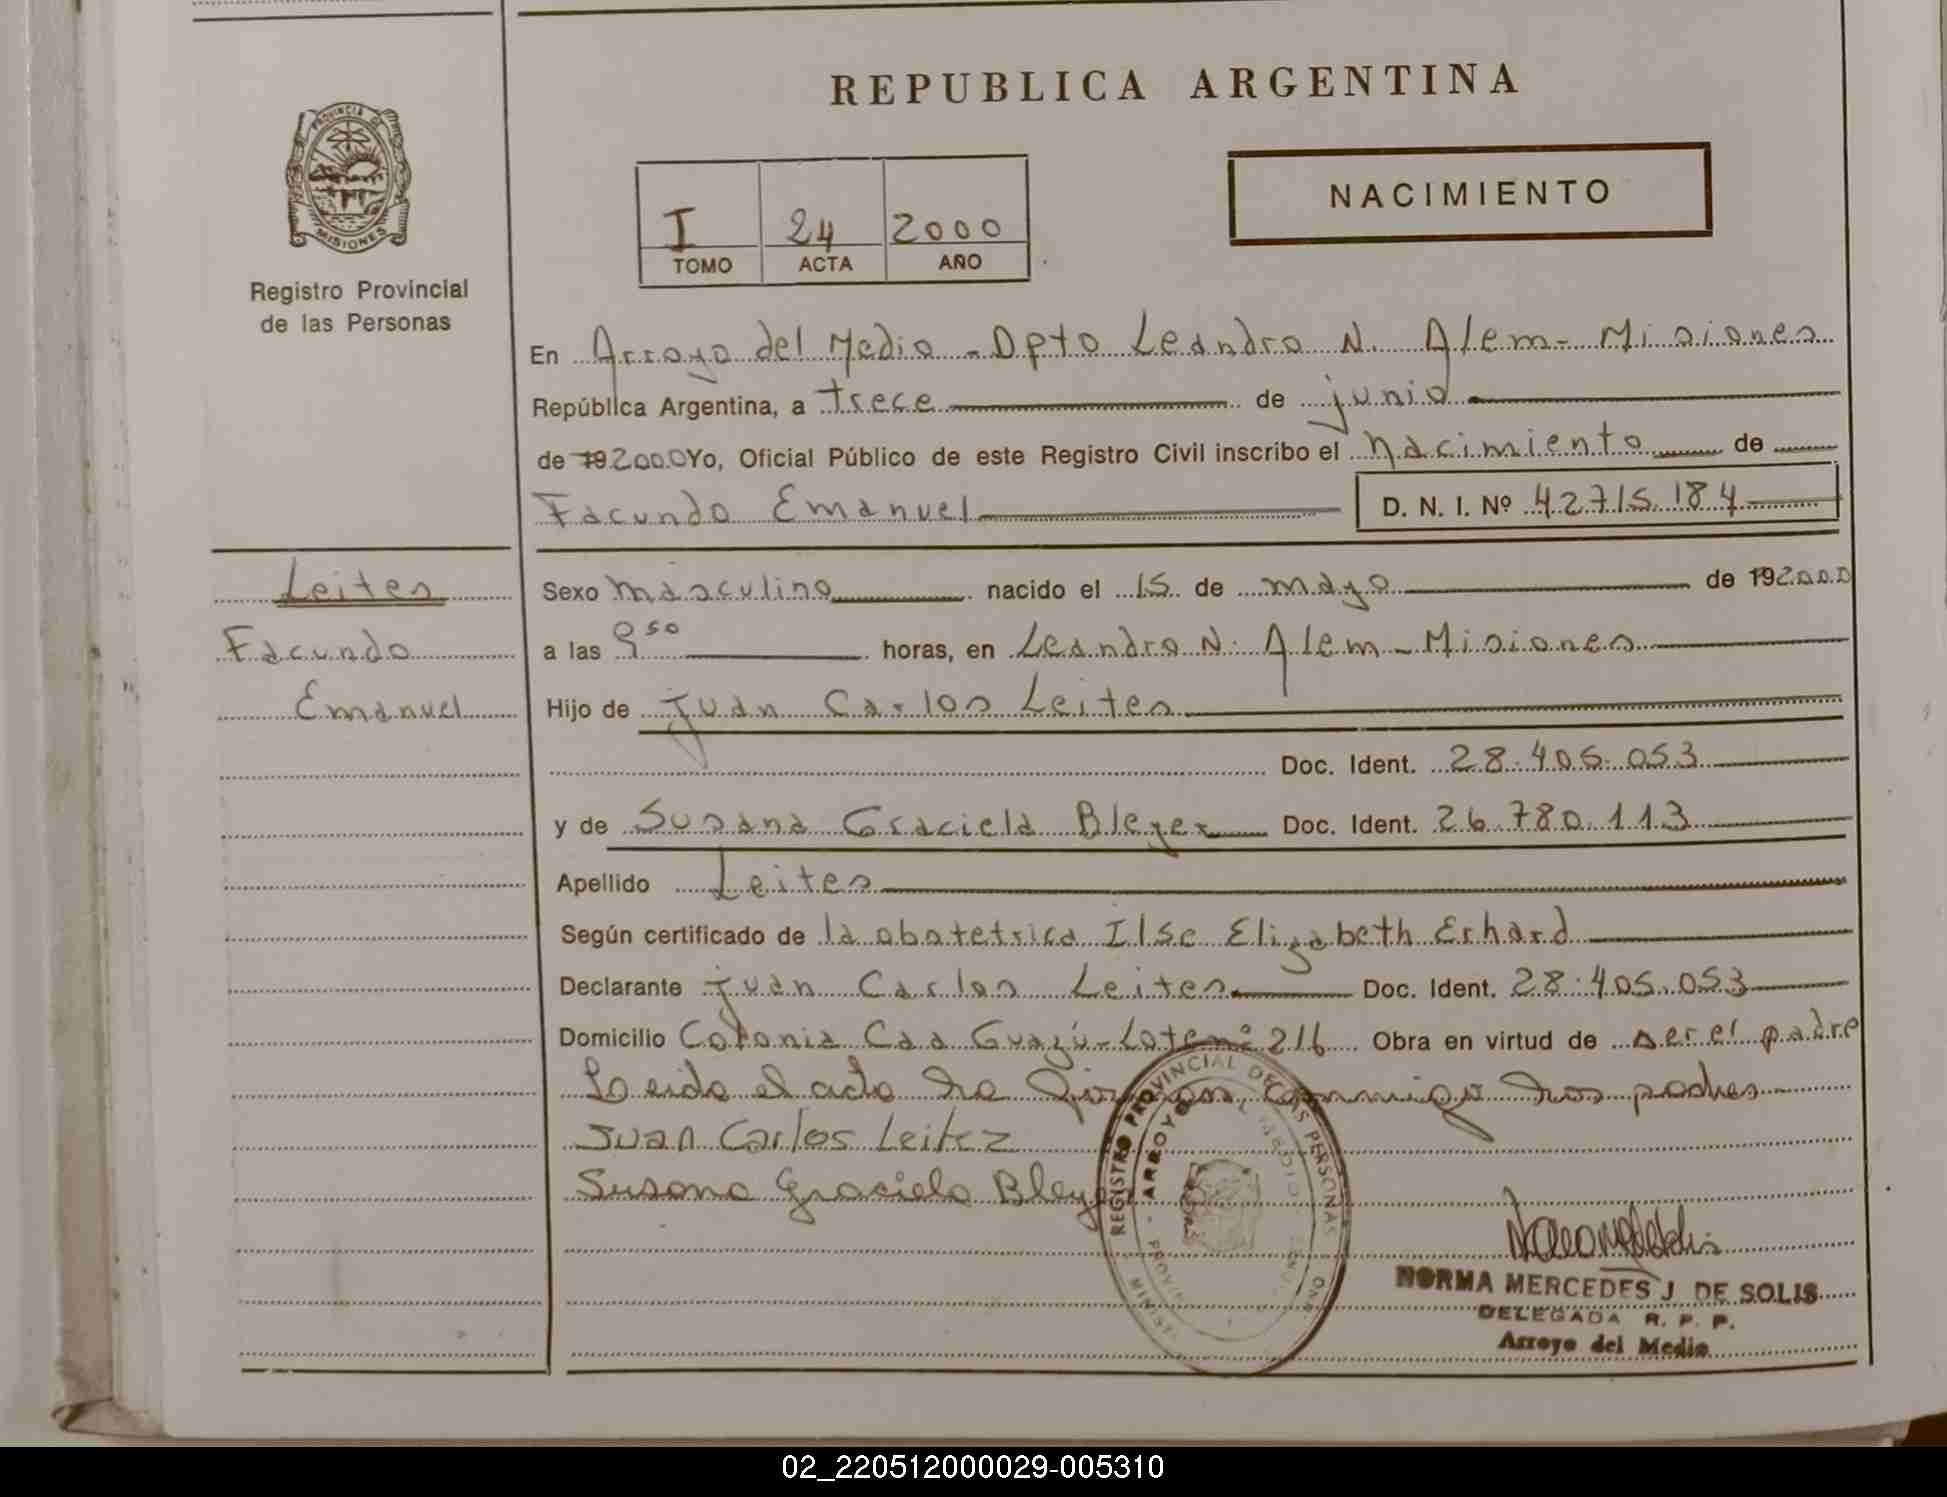 REPUBLICA ARGENTINA
PROVINCIA DE
MISIONES
Registro Provincial
de las Personas
NACIMIENTO
I 24 2000
TOMO ACTA AÑO
En Arroyo del Medio - Dpto Leandro N. Alem - Misiones
República Argentina, a trece de junio
de 192000 Yo, Oficial Público de este Registro Civil inscribo el nacimiento de
Facundo Emanuel D. N. I. Nº 42.715.184
Leites
Facundo
Emanuel
Sexo masculino nacido el 15 de mayo de 192000
a las 9 50 horas, en Leandro N. Alem - Misiones
Hijo de Juan Carlos Leites
Doc. Ident. 28.405.053
y de Susana Graciela Bleyer Doc. Ident. 26.780.113
Apellido Leites
Según certificado de la obstetrica Ilse Elizabeth Erhard
Declarante Juan Carlos Leites Doc. Ident. 28.405.053
Domicilio Colonia Caa Guazú - Lote nº 216 Obra en virtud de ser el padre
Leida el acta la firman conmigo los padres
Juan Carlos Leitez
Susana Graciela Bleyer
REGISTRO PROVINCIAL DE LAS PERSONAS
ARROYO DEL MEDIO
NORMA MERCEDES J. DE SOLIS
DELEGADA R. P. P.
Arroyo del Medio
02_220512000029-005310